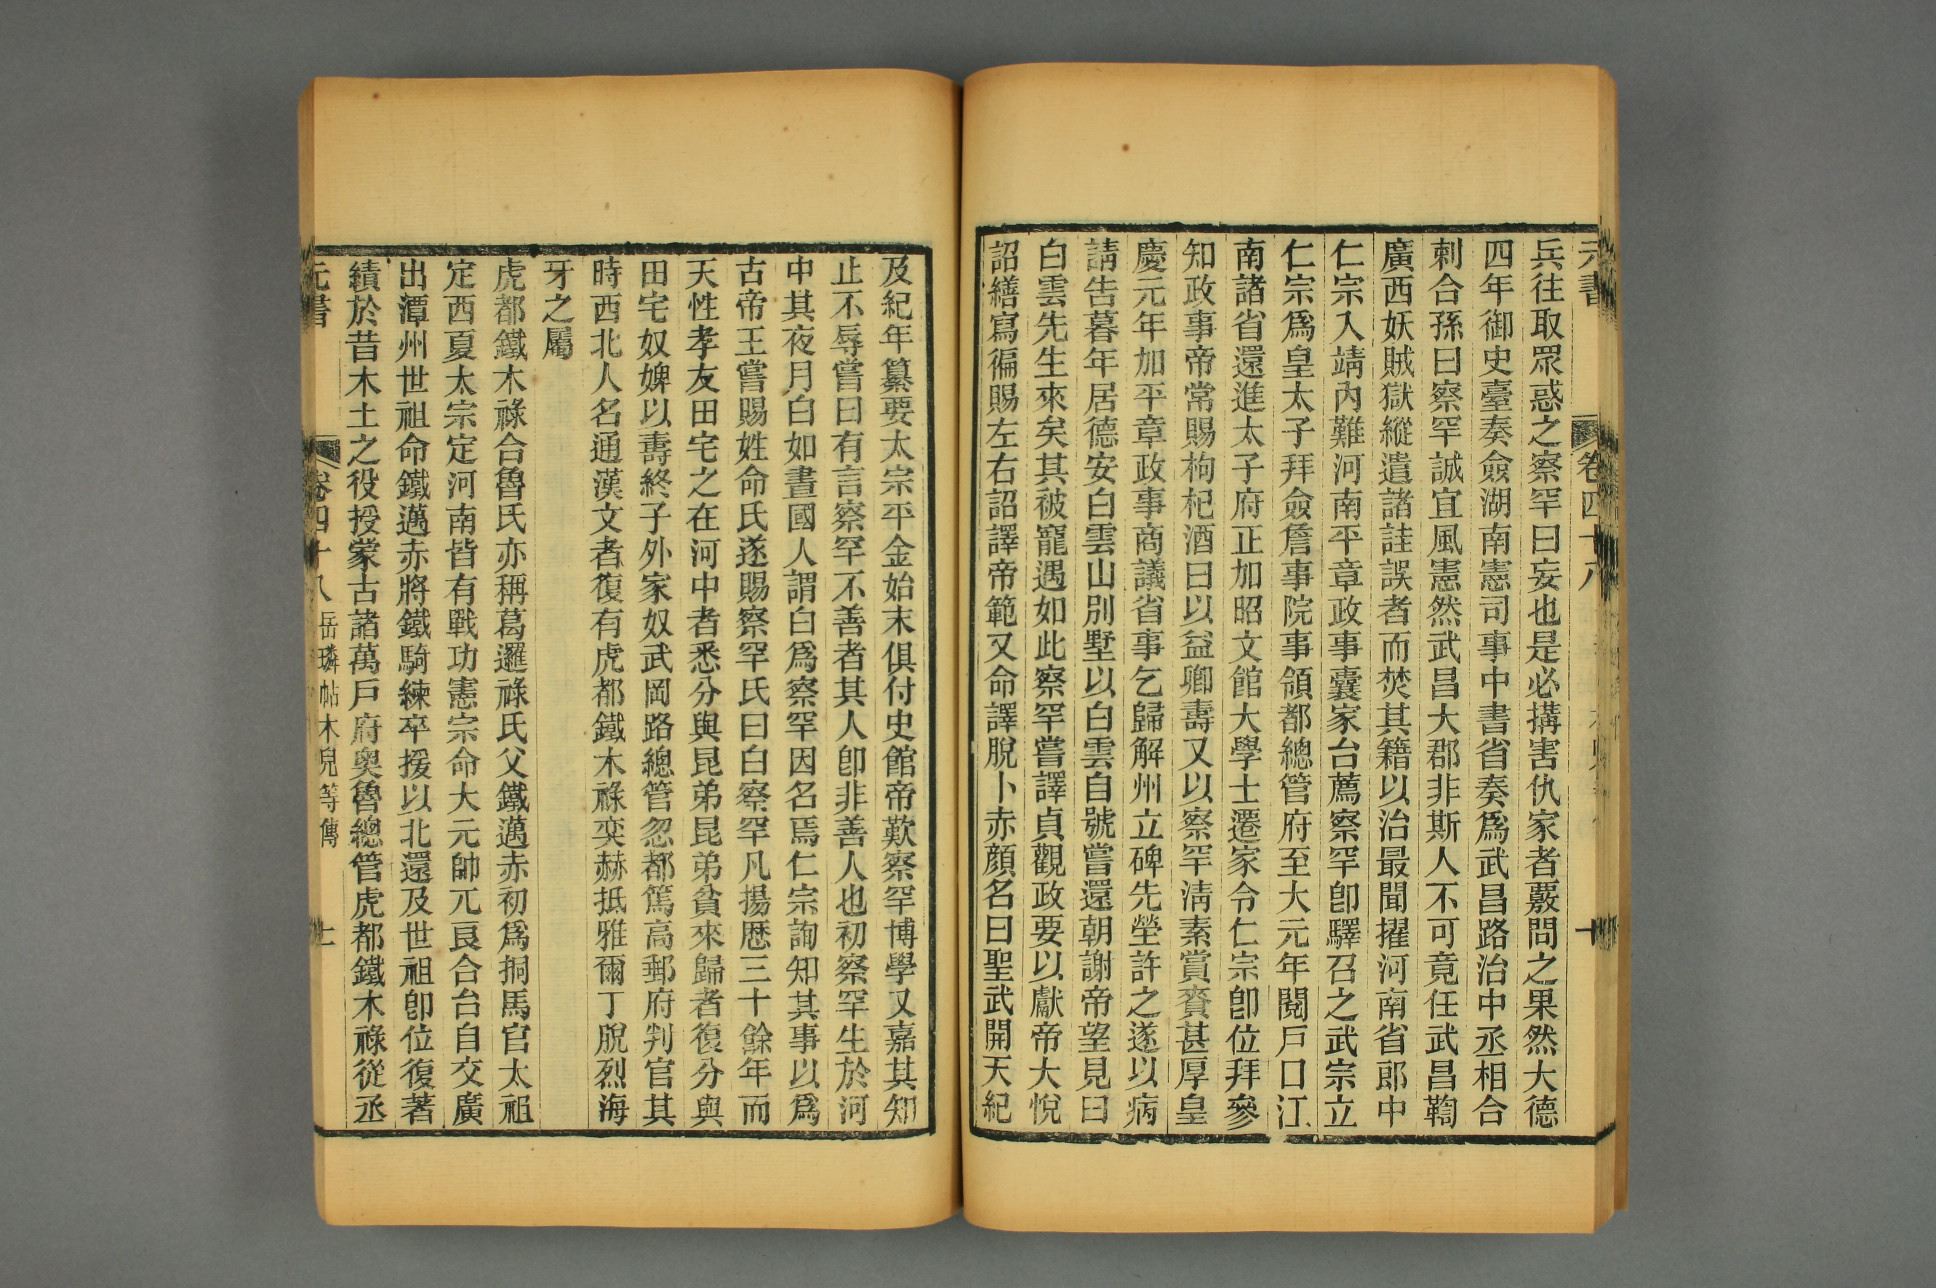 元書
卷四十八
十
兵往取眾惑之察罕曰妄也是必搆害仇家者覈問之果然大德
四年御史臺奏僉湖南憲司事中書省奏爲武昌路治中丞相合
剌合孫曰察罕誠宜風憲然武昌大郡非斯人不可竟任武昌鞫
廣西妖賊獄縱遣諸詿誤者而焚其籍以治最聞擢河南省郎中
仁宗入靖內難河南平章政事囊家台薦察罕卽驛召之武宗立
仁宗爲皇太子拜僉詹事院事領都總管府至大元年閱戶口江
南諸省還進太子府正加昭文館大學士遷家令仁宗卽位拜參
知政事帝常賜枸杞酒曰以益卿壽又以察罕淸素賞賚甚厚皇
慶元年加平章政事商議省事乞歸解州立碑先塋許之遂以病
請告暮年居德安白雲山別墅以白雲自號嘗還朝謝帝望見曰
白雲先生來矣其被寵遇如此察罕嘗譯貞觀政要以獻帝大悅
詔繕寫徧賜左右詔譯帝範又命譯脫卜赤顏名曰聖武開天紀
及紀年纂要太宗平金始末俱付史館帝歎察罕博學又嘉其知
止不辱嘗曰有言察罕不善者其人卽非善人也初察罕生於河
中其夜月白如晝國人謂白爲察罕因名焉仁宗詢知其事以爲
古帝王嘗賜姓命氏遂賜察罕氏曰白察罕凡揚歷三十餘年而
天性孝友田宅之在河中者悉分與昆弟昆弟貧來歸者復分與
田宅奴婢以壽終子外家奴武岡路總管忽都篤高郵府判官其
時西北人名通漢文者復有虎都鐵木祿奕赫抵雅爾丁脫烈海
牙之屬
虎都鐵木祿合魯氏亦稱葛邏祿氏父鐵邁赤初爲挏馬官太祖
定西夏太宗定河南皆有戰功憲宗命大元帥兀良合台自交廣
出潭州世祖命鐵邁赤將鐵騎練卒援以北還及世祖卽位復著
績於昔木土之役授蒙古諸萬戶府奧魯總管虎都鐵木祿從丞
元書
卷四十八 岳璘帖木兒等傳
十一